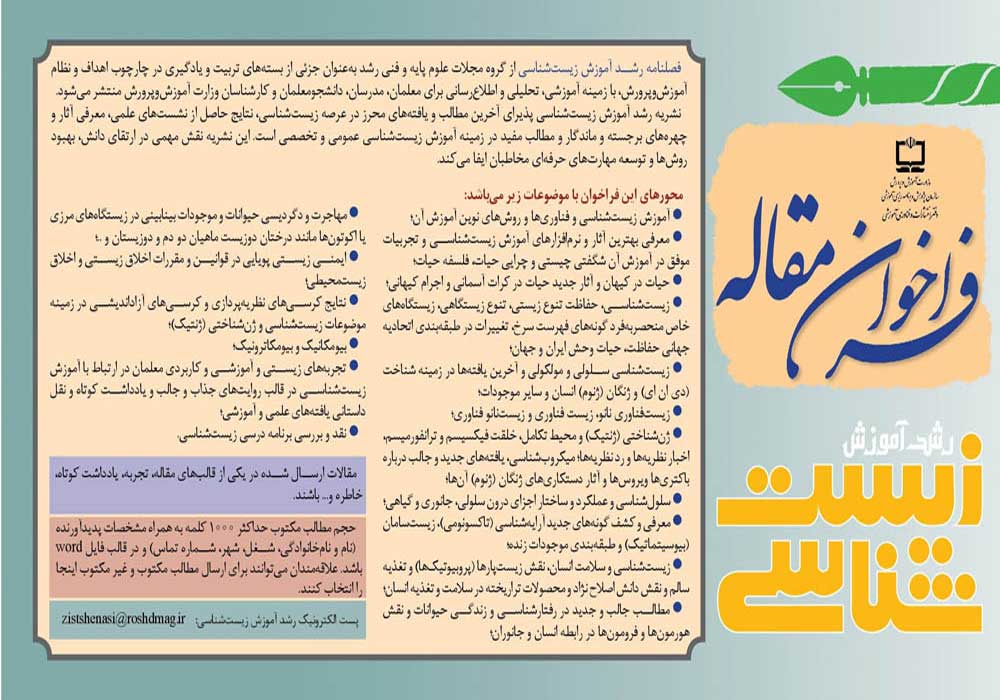 فصلنامه رشـد آموزش زیست‌شناسی از گروه مجلات علوم پایه و فنی رشد به‌عنوان جزئی از بسته‌های تربیت و یادگیری در چارچوب اهداف و نظام
آموزش‌وپرورش، با زمینه آموزشی، تحلیلی و اطلاع‌رسانی برای معلمان، مدرسان، دانشجومعلمان و کارشناسان وزارت آموزش‌وپرورش منتشر می‌شود.
نشریه رشد آموزش زیست‌شناسی پذیرای آخرین مطالب و یافته‌های محرز در عرصه زیست‌شناسی، نتایج حاصل از نشست‌های علمی، معرفی آثار و
چهره‌های برجسته و ماندگار و مطالب مفید در زمینه آموزش زیست‌شناسی عمومی و تخصصی است. این نشریه نقش مهمی در ارتقای دانش، بهبود
روش‌ها و توسعه مهارت‌های حرفه‌ای مخاطبان ایفا می‌کند.
محورهای این فراخوان با موضوعات زیر می‌باشد:
● آموزش زیست‌شناسی و فناوری‌ها و روش‌های نوین آموزش آن؛
● معرفی بهترین آثار و نرم‌افزارهای آموزش زیست‌شناسـی و تجربیات
موفق در آموزش آن شگفتی چیستی و چرایی حیات، فلسفه حیات؛
● حیات در کیهان و آثار جدید حیات در کرات آسمانی و اجرام کیهانی؛
● زیست‌شناسـی، حفاظت تنوع زیستی، تنوع زیستگاهی، زیستگاه‌های
خاص منحصربه‌فرد گونه‌های فهرست سرخ، تغییرات در طبقه‌بندی اتحادیه
جهانی حفاظت، حیات وحش ایران و جهان؛
● زیست‌شناسی سـلولی و مولکولی و آخرین یافته‌ها در زمینه شناخت
(دی ان ای) و ژنگان (ژنوم) انسان و سایر موجودات؛
● زیست‌فناوری نانو، زیست فناوری و زیست‌نانو فناوری؛
● ژن‌شناختی (ژنتیک) و محیط تکامل، خلقت فیکسیسم و ترانفورمیسم،
اخبار نظریه‌ها و رد نظریه‌ها؛ میکروب‌شناسی، یافته‌های جدید و جالب درباره
باکتری‌ها ویروس‌ها و آثار دستکاری‌های ژنگان (ژنوم) آن‌ها؛
● سلول‌شناسی و عملکرد و ساختار اجزای درون سلولی، جانوری و گیاهی؛
● معرفی و کشف گونه‌های جدید آرایه‌شناسی (تاکسونومی)، زیست‌سامان
(بیوسیتماتیک) و طبقه‌بندی موجودات زنده؛
● زیست‌شناسی و سلامت انسان، نقش زیست‌یارها (پروبیوتیک‌ها) و تغذیه
سالم و نقش دانش اصلاح نژاد و محصولات تراریخته در سلامت و تغذیه انسان؛
● مطالـب جالب و جدید در رفتارشناسـی و زندگـی حیوانات و نقش
هورمون‌ها و فرومون‌ها در رابطه انسان و جانوران؛
● مهاجرت و دگردیسی حیوانات و موجودات بینابینی در زیستگاه‌های مرزی
یا اکوتون‌ها مانند درختان دوزیست ماهیان دو دم و دوزیستان و ..؛
● ایمنـی زیسـتی پویایی در قوانیـن و مقررات اخلاق زیسـتی و اخلاق
زیست‌محیطی؛
● نتایج کرسی‌های نظریه‌پردازی و کرسی‌های آزاداندیشـی در زمینه
موضوعات زیست‌شناسی و ژن‌شناختی (ژنتیک)؛
● بیومکانیک و بیومکاترونیک؛
● تجربه‌های زیستی و آموزشـی و کاربردی معلمان در ارتباط با آموزش
زیست‌شناسی در قالب روایت‌های جذاب و جالب و یادداشـت کوتاه و نقل
داستانی یافته‌های علمی و آموزشی؛
● نقد و بررسی برنامه درسی زیست‌شناسی.
مقالات ارسـال شـده در یکی از قالب‌های مقاله، تجربه، یادداشت کوتاه،
خاطره و... باشند.
حجم مطالب مکتوب حداکثر ۱۰۰۰ کلمه به همراه مشخصات پدیدآورنده
(نام و نام‌خانوادگی، شـغل، شهر، شـماره تماس) و در قالب فایل word
باشد. علاقه‌مندان می‌توانند برای ارسال مطالب مکتوب و غیر مکتوب اینجا
را انتخاب کنند.
پست الکترونیک رشد آموزش زیست‌شناسی: zistshenasi@roshdmag.ir
وزارت آموزش و پرورش
سازمان پژوهش و برنامه‌ریزی آموزشی
دفتر انتشارات و فناوری آموزشی
فراخوان مقاله
رشد آموزش
زیست
شناسی